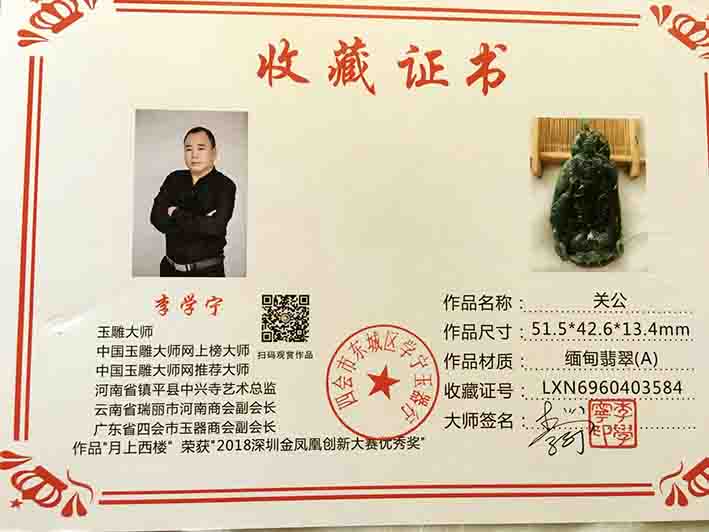 收藏证书
李学宁
扫码观赏作品
玉雕大师
中国玉雕大师网上榜大师
中国玉雕大师网推荐大师
河南省镇平县中兴寺艺术总监
云南省瑞丽市河南商会副会长
广东省四会市玉器商会副会长
作品"月上西楼" 荣获"2018深圳金凤凰创新大赛优秀奖"
四会市东城区学宁玉器行
作品名称： 关公
作品尺寸：51.5*42.6*13.4mm
作品材质： 缅甸翡翠(A)
收藏证号： LXN6960403584
大师签名：
李學寧印